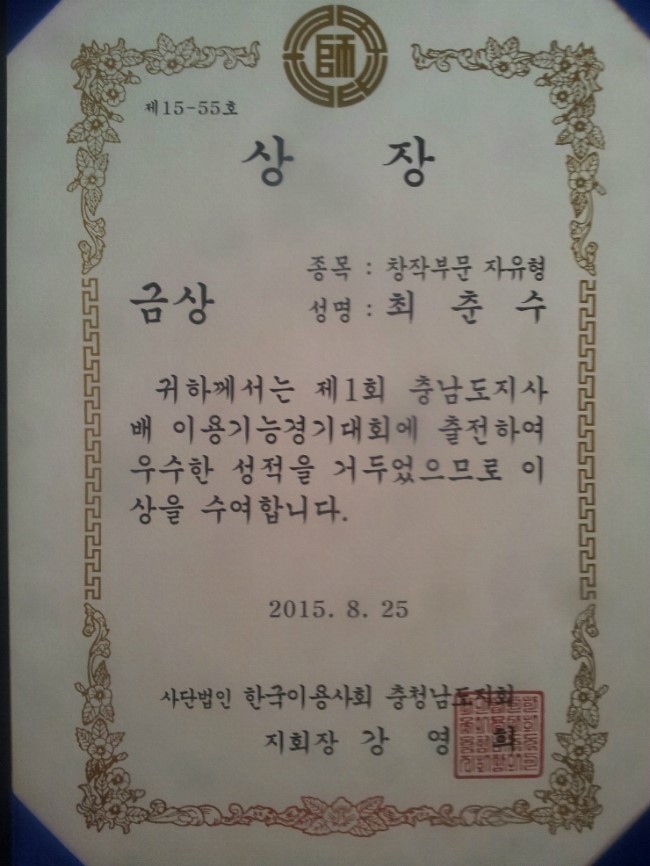 師
제15-55호
상 장
종목 : 창작부문 자유형
금상
성명 : 최 춘 수
귀하께서는 제1회 충남도지사
배 이용기능경기대회에 출전하여
우수한 성적을 거두었으므로 이
상을 수여합니다.
2015. 8. 25
사단법인 한국이용사회 충청남도지회
지회장 강 영 희